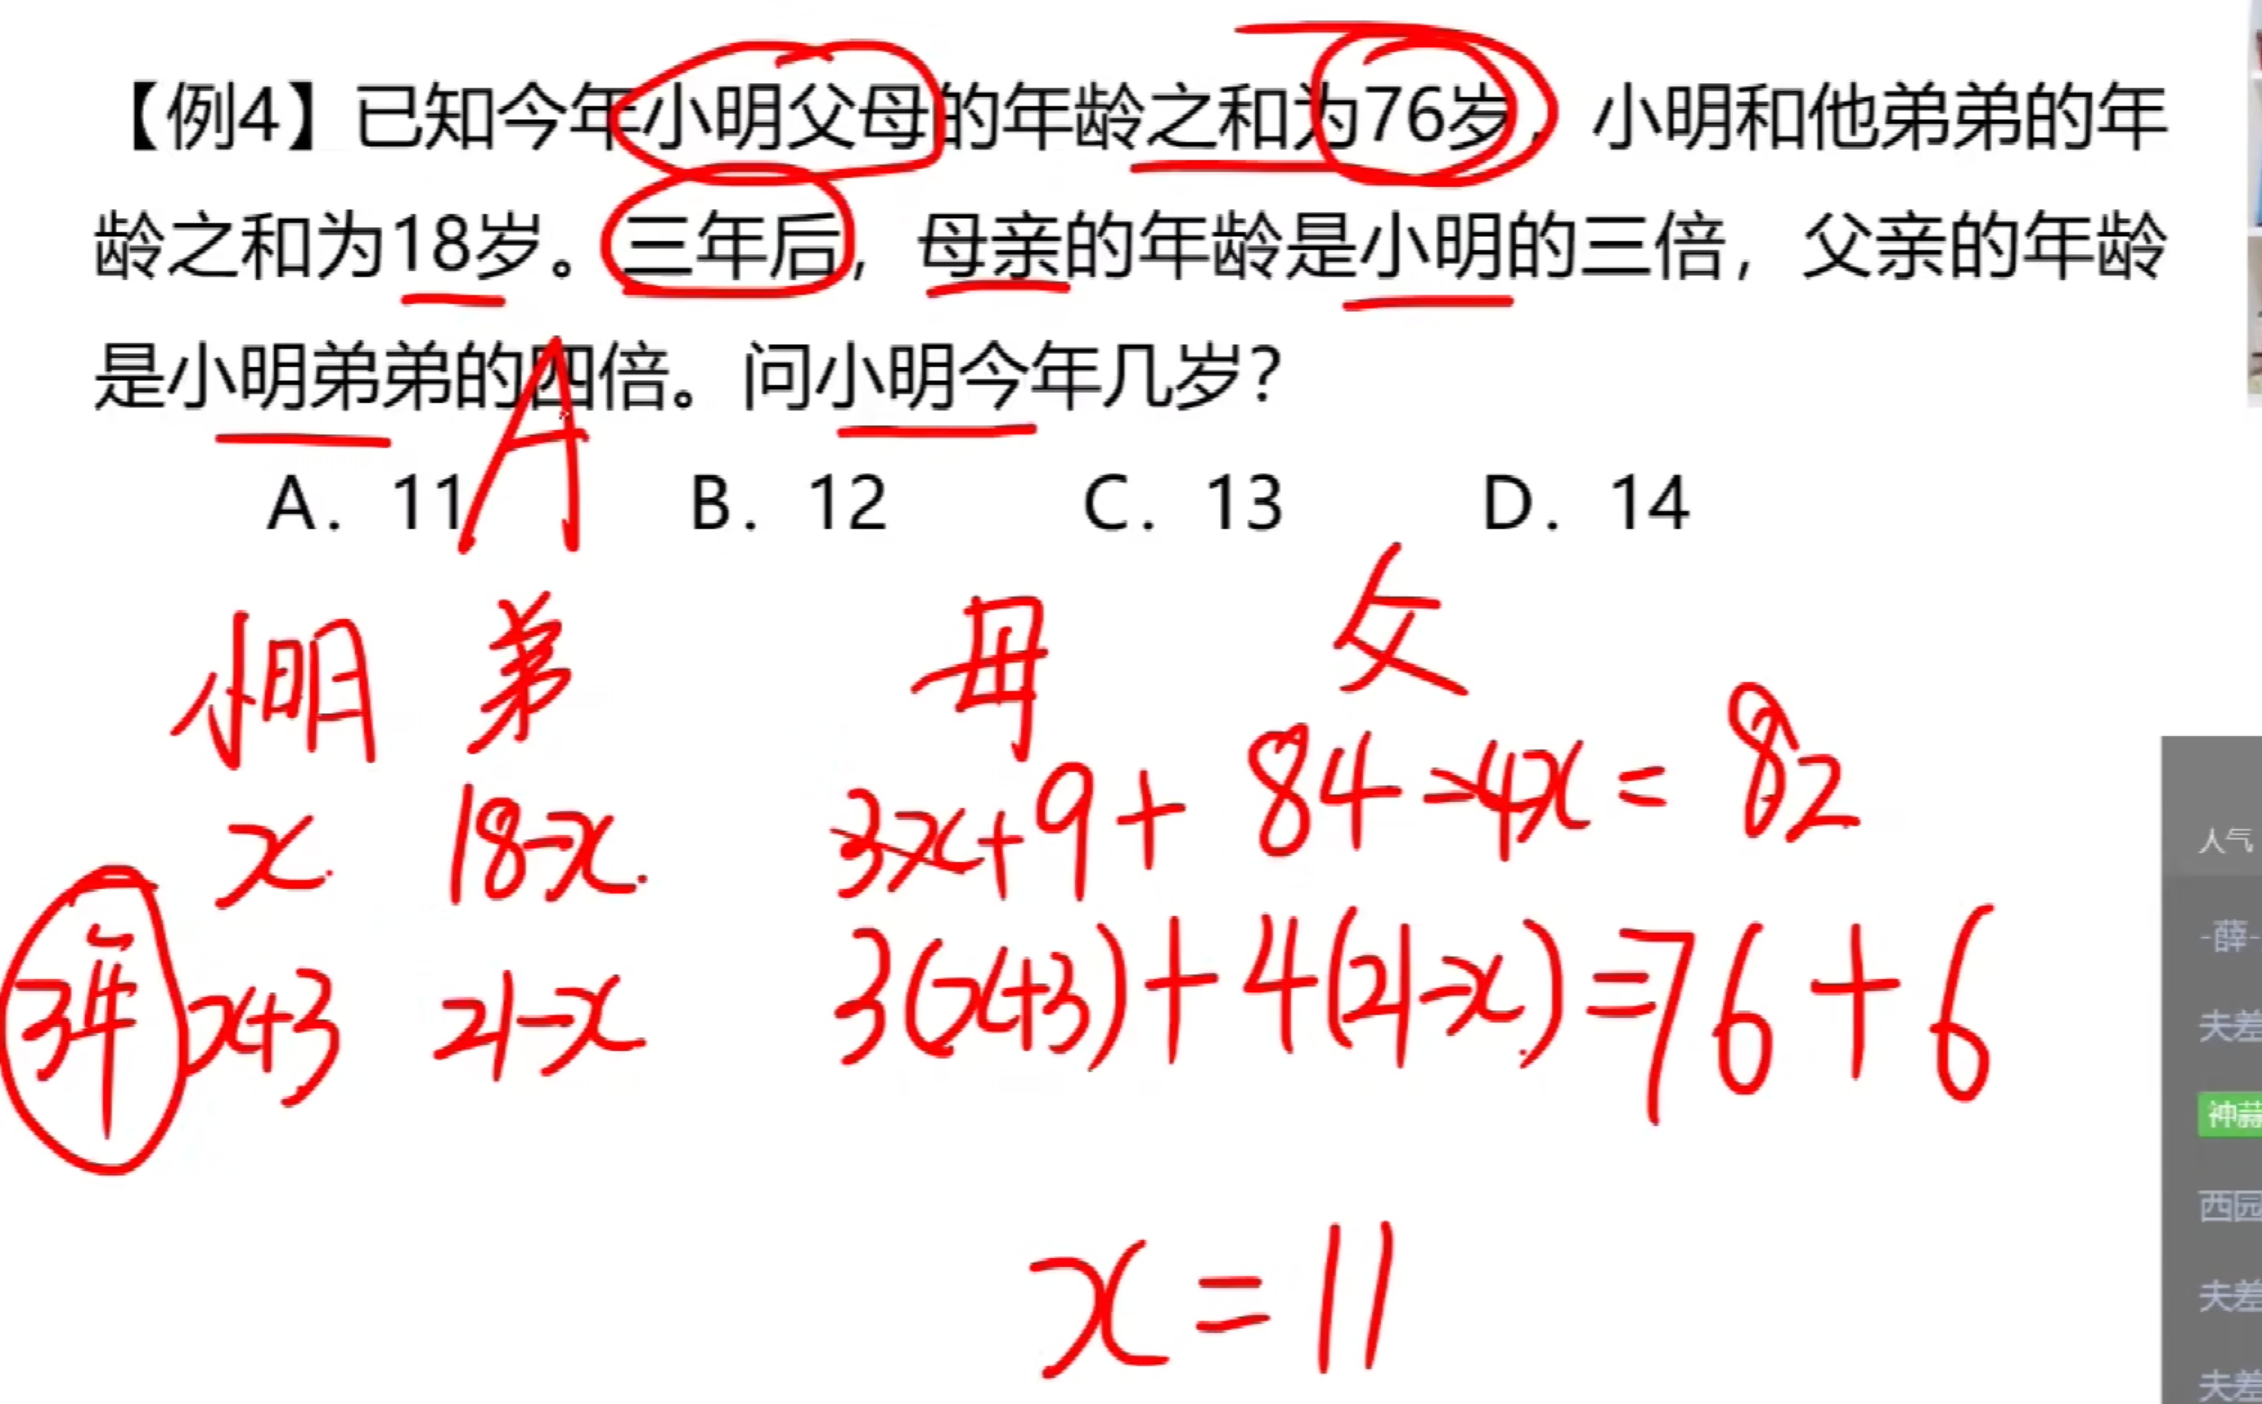 【例4】已知今年小明父母的年龄之和为76岁，小明和他弟弟的年
龄之和为18岁。三年后，母亲的年龄是小明的三倍，父亲的年龄
是小明弟弟的四倍。问小明今年几岁？
A. 11 B. 12 C. 13 D. 14
A
小明 弟 母 父
x 18-x 3x+9+84-4x=82
3年 x+3 21-x 3(x+3)+4(21-x)=76+6
x=11
人气
-薛-
夫差
神蒜
西园
夫差
夫差